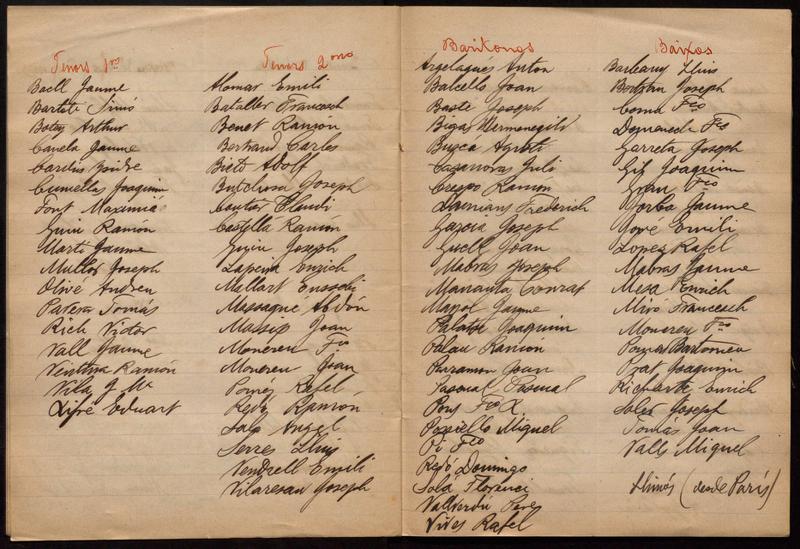 Tenors 1rs
Baell Jaume
Bartolí Sinió
Botey Arthur
Canela Jaume
Cardús Isidre
Cumellas Joaquim
Font Maximiá
Guiu Ramón
Martí Jaume
Mullor Joseph
Olivé Andreu
Patera Tomás
Rich Victor
Vall Jaume
Ventura Ramón
Vila J. Mª
Lifré Eduart
Tenors 2ons
Alomar Emili
Bataller Francesch
Benet Ramón
Bertrand Carles
Bieto Adolf
Butchosa Joseph
Coutier Claudi
Costella Ramón
Guiu Joseph
Lapeira Enrich
Mallart
Massagué Abdón
Massip Joan
Moncreu Fco
Moncreu Joan
Pomés Rafel
Ramón
Sala Angel
Serres Lluis
Vendrell Emili
Vilaresau Joseph
Baritons
Argelagués Anton
Balcells Joan
Basté Joseph
Bigas Hermenegild
Busca Agustí
Casanovas Juli
Crespo Ramón
Damians Frederich
Gazona Joseph
Guell Joan
Mabras Joseph
Manrauta Conrat
Mayol Jaume
Palatti Joaquim
Palau Ramón
Parramon Joan
Pascual Pascual
Pons Fco X
Posiello Miquel
Pi Fco
Rejó Domingo
Solá Florenci
Vallverdú Pere
Vives Rafel
Baixos
Barbany Lluis
Bordan Joseph
Coma Fco
Domenech Fco
Garreta Joseph
Gil Joaquim
Grau Fco
Jorba Jaume
Jové Emili
Lopez Rafel
Mabras Jaume
Mesa Enrich
Miró Francesch
Moncreu Fco
Pomés Bartomeu
Prat Joaquim
Richarte Enrich
Soler Joseph
Tomás Joan
Valls Miquel
Llimós (desde París)